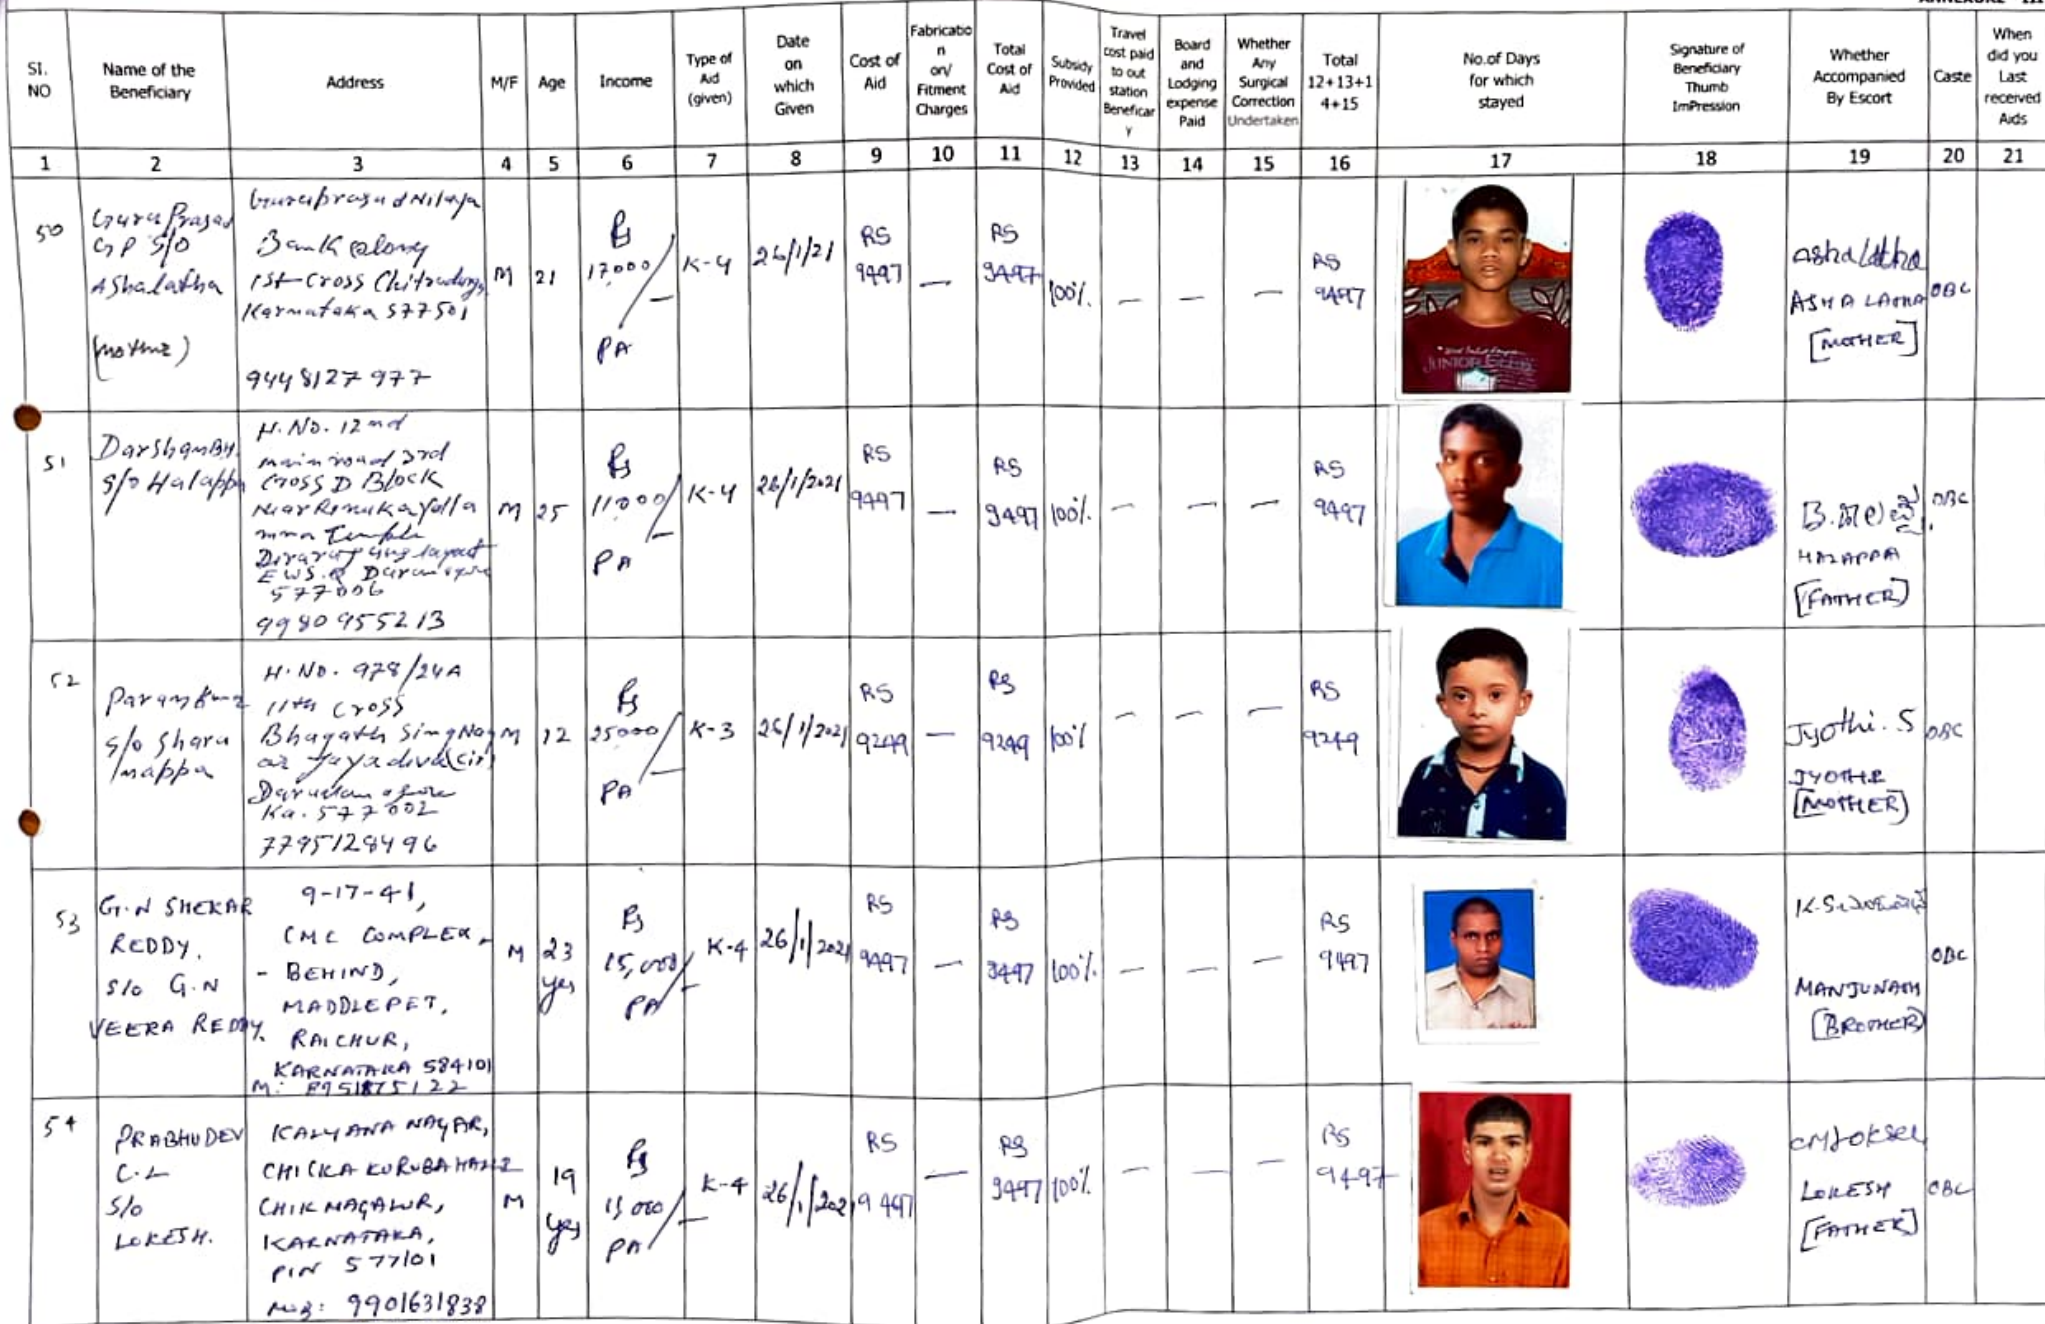 ANNEXURE - III
SI. NO
Name of the Beneficiary
Address
M/F
Age
Income
Type of Aid (given)
Date on which Given
Cost of Aid
Fabricatio n on/ Fitment Charges
Total Cost of Aid
Subsidy Provided
Travel cost paid to out station Beneficar y
Board and Lodging expense Paid
Whether Any Surgical Correction Undertaken
Total 12+13+1 4+15
No.of Days for which stayed
Signature of Beneficiary Thumb ImPression
Whether Accompanied By Escort
Caste
When did you Last recerved Aids
1 2 3 4 5 6 7 8 9 10 11 12 13 14 15 16 17 18 19 20 21
50
Guru Prasad
G P S/O
Ashalatha
(mother)
Guruprasad Nilaya
Bank colony
1st Cross Chitradurga
Karnataka 577501
9448127977
M
21
Rs
17000/-
PA
K-4
26/1/21
RS
9497
—
RS
9497
100%
— — —
RS
9497
JUNIOR
Ashalatha
ASHA LATHA
[MOTHER]
OBC
51
Darshan BH
S/o Halappa
H. No. 12nd
main road 3rd
Cross D Block
Near Renuka Yalla
mma Temple
layout
EWS.
577006
9980955213
M
25
Rs
11000/-
PA
K-4
26/1/2021
RS
9497
—
RS
9497
100%
— — —
RS
9497
HALAPPA
[FATHER]
OBC
52
S/o Shara
nappa
H. No. 978/24A
11th Cross
Bhagath Sing Nag
ar
Ka. 577002
7795128496
M
12
Rs
25000/-
PA
K-3
26/1/2021
RS
9249
—
RS
9249
100%
— — —
RS
9249
Jyothi. S
JYOTHI
[MOTHER]
OBC
53
G.N SHEKAR
REDDY.
S/o G.N
VEERA REDDY.
9-17-41,
CMC COMPLEX,
- BEHIND,
MADDLEPET,
RAICHUR,
KARNATAKA 584101
M: 8951875122
M
23
yes
Rs
15,000/-
PA
K-4
26/1/2021
RS
9497
—
RS
9497
100%
— — —
RS
9497
MANJUNATH
[BROTHER]
OBC
54
PRABHUDEV
C.L
S/o
LOKESH.
KALYANA NAGAR,
CHICKA KURUBAHALLI
CHIKMAGALUR,
KARNATAKA,
PIN 577101
Mob: 9901631838
M
19
yes
Rs
15,000/-
PA
K-4
26/1/2021
RS
9497
—
RS
9497
100%
— — —
RS
9497
LOKESH
[FATHER]
OBC